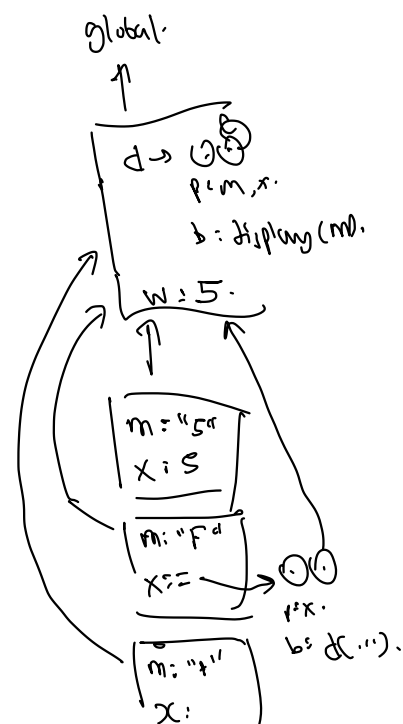 global.
d →
p: m, x.
b: display(m).
w: 5.
m: "5"
x: 5
m: "F"
x:
p: x.
b: d(...).
m: "t"
x: